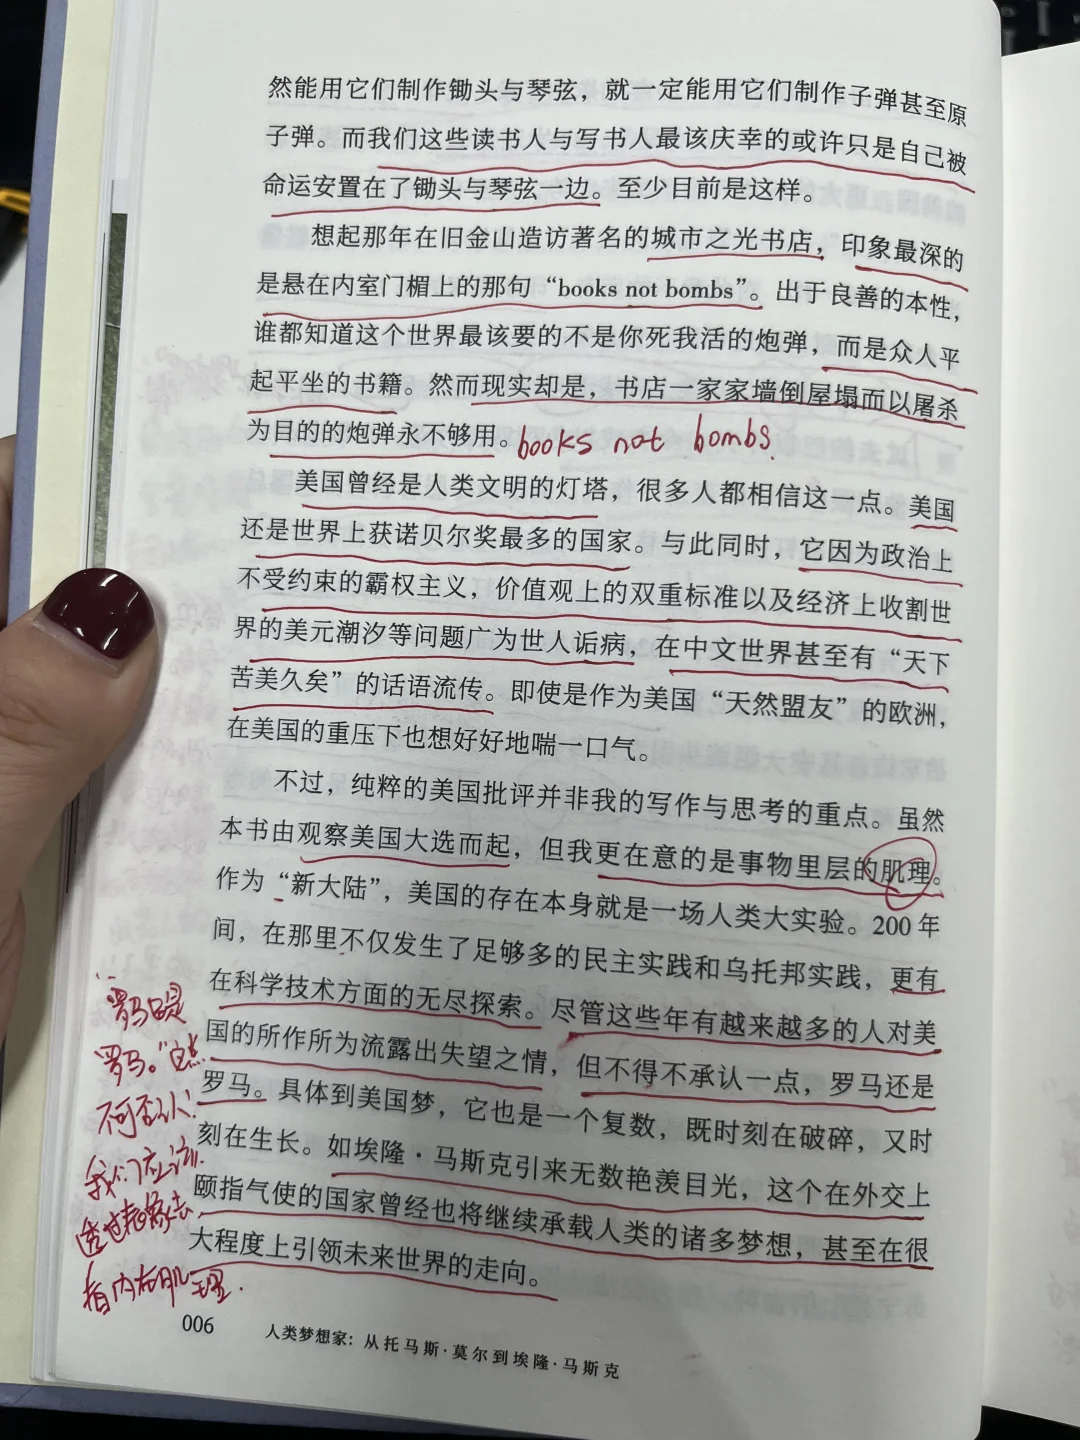 然能用它们制作锄头与琴弦，就一定能用它们制作子弹甚至原
子弹。而我们这些读书人与写书人最该庆幸的或许只是自己被
命运安置在了锄头与琴弦一边。至少目前是这样。
想起那年在旧金山造访著名的城市之光书店，印象最深的
是悬在内室门楣上的那句“books not bombs”。出于良善的本性，
谁都知道这个世界最该要的不是你死我活的炮弹，而是众人平
起平坐的书籍。然而现实却是，书店一家家墙倒屋塌而以屠杀
为目的的炮弹永不够用。
books not bombs.
美国曾经是人类文明的灯塔，很多人都相信这一点。美国
还是世界上获诺贝尔奖最多的国家。与此同时，它因为政治上
不受约束的霸权主义，价值观上的双重标准以及经济上收割世
界的美元潮汐等问题广为世人诟病，在中文世界甚至有“天下
苦美久矣”的话语流传。即使是作为美国“天然盟友”的欧洲，
在美国的重压下也想好好地喘一口气。
不过，纯粹的美国批评并非我的写作与思考的重点。虽然
本书由观察美国大选而起，但我更在意的是事物里层的肌理。
作为“新大陆”，美国的存在本身就是一场人类大实验。200 年
间，在那里不仅发生了足够多的民主实践和乌托邦实践，更有
在科学技术方面的无尽探索。尽管这些年有越来越多的人对美
国的所作所为流露出失望之情，但不得不承认一点，罗马还是
罗马。具体到美国梦，它也是一个复数，既时刻在破碎，又时
刻在生长。如埃隆·马斯克引来无数艳羡目光，这个在外交上
颐指气使的国家曾经也将继续承载人类的诸多梦想，甚至在很
大程度上引领未来世界的走向。
“罗马还是
罗马。”这点
不可否认！
我们应该
透过表象去
看内在肌理.
006
人类梦想家：从托马斯·莫尔到埃隆·马斯克